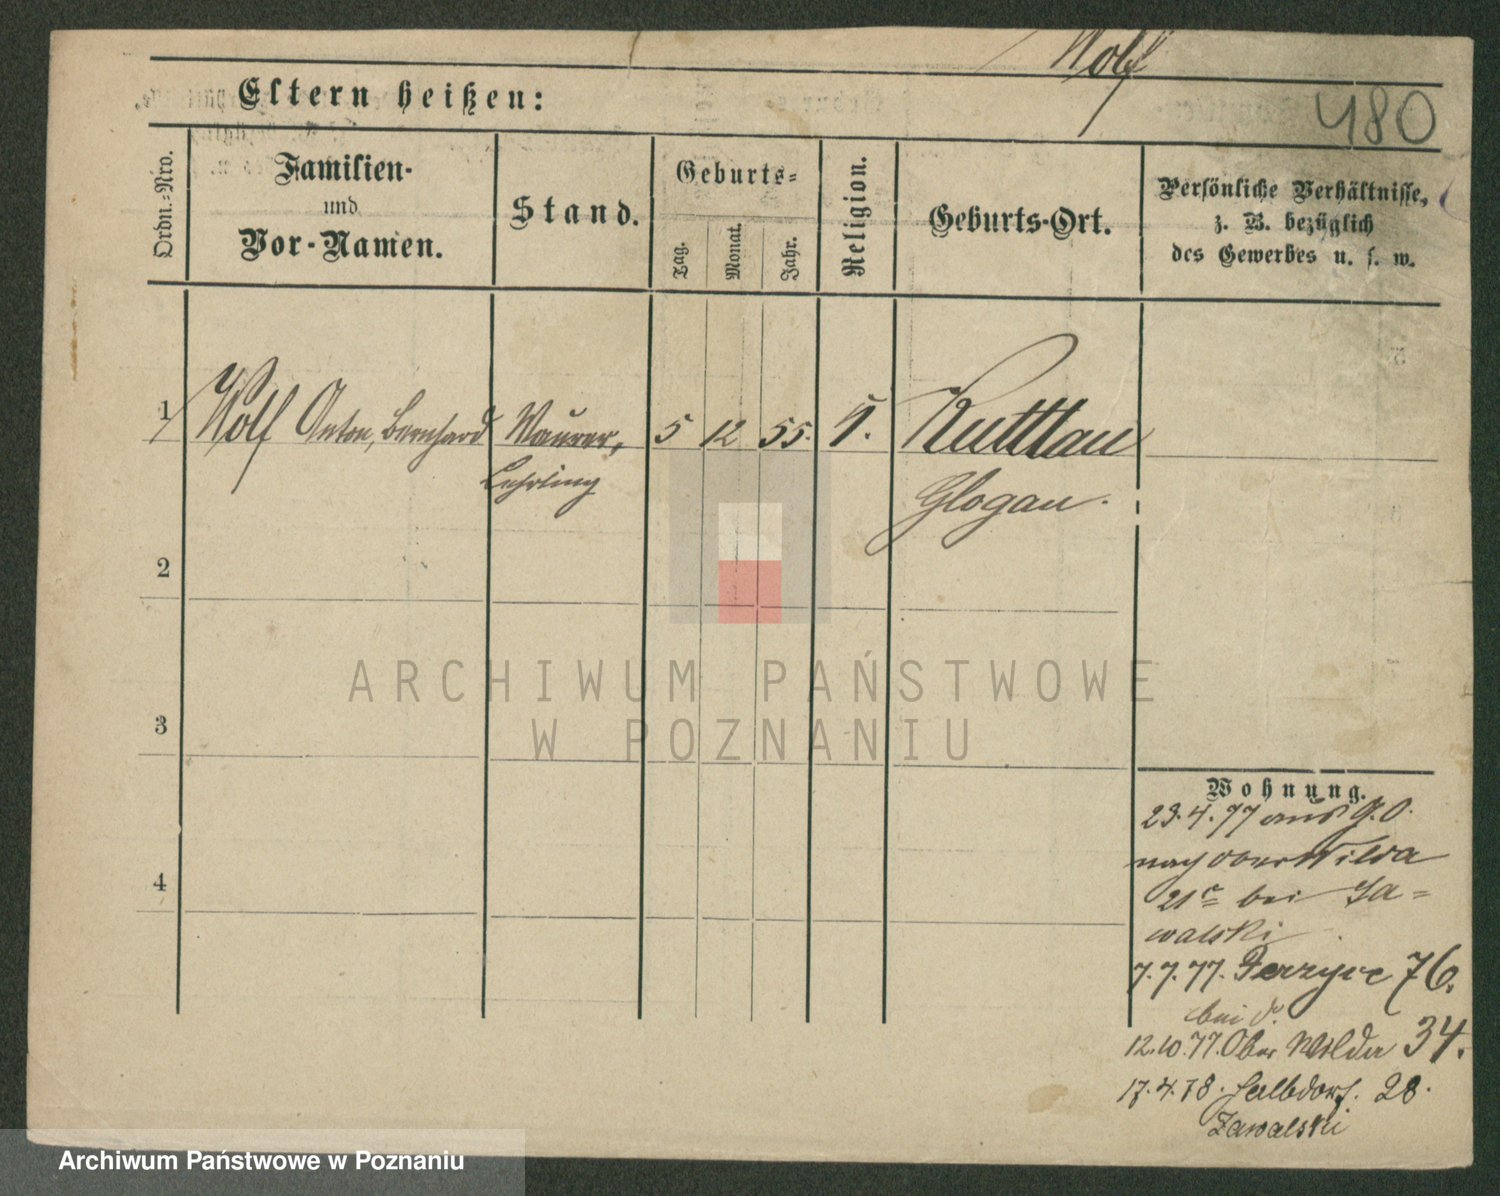 Wolf
Eltern heißen:
480
Ordn.-Nro.
Familien-
und
Vor-Namen.
Stand.
Geburts-
Tag.
Monat.
Jahr.
Religion.
Geburts-Ort.
Persönliche Verhältnisse,
z. B. bezüglich
des Gewerbes u. s. w.
1 Wolf Anton, Bernhard Maurer, 5 12 55. Kuttlau
Lehrling Glogau.
2
3
4
ARCHIWUM PAŃSTWOWE
W POZNANIU
Wohnung.
23.4.77 aus G. O.
nach Ober Wilda
21c bei Za=
walski
7.7.77. 76.
bei d.
12.10.77. Ober Wilda 34.
17.4.78. Halbdorf. 28.
Zawalski
Archiwum Państwowe w Poznaniu